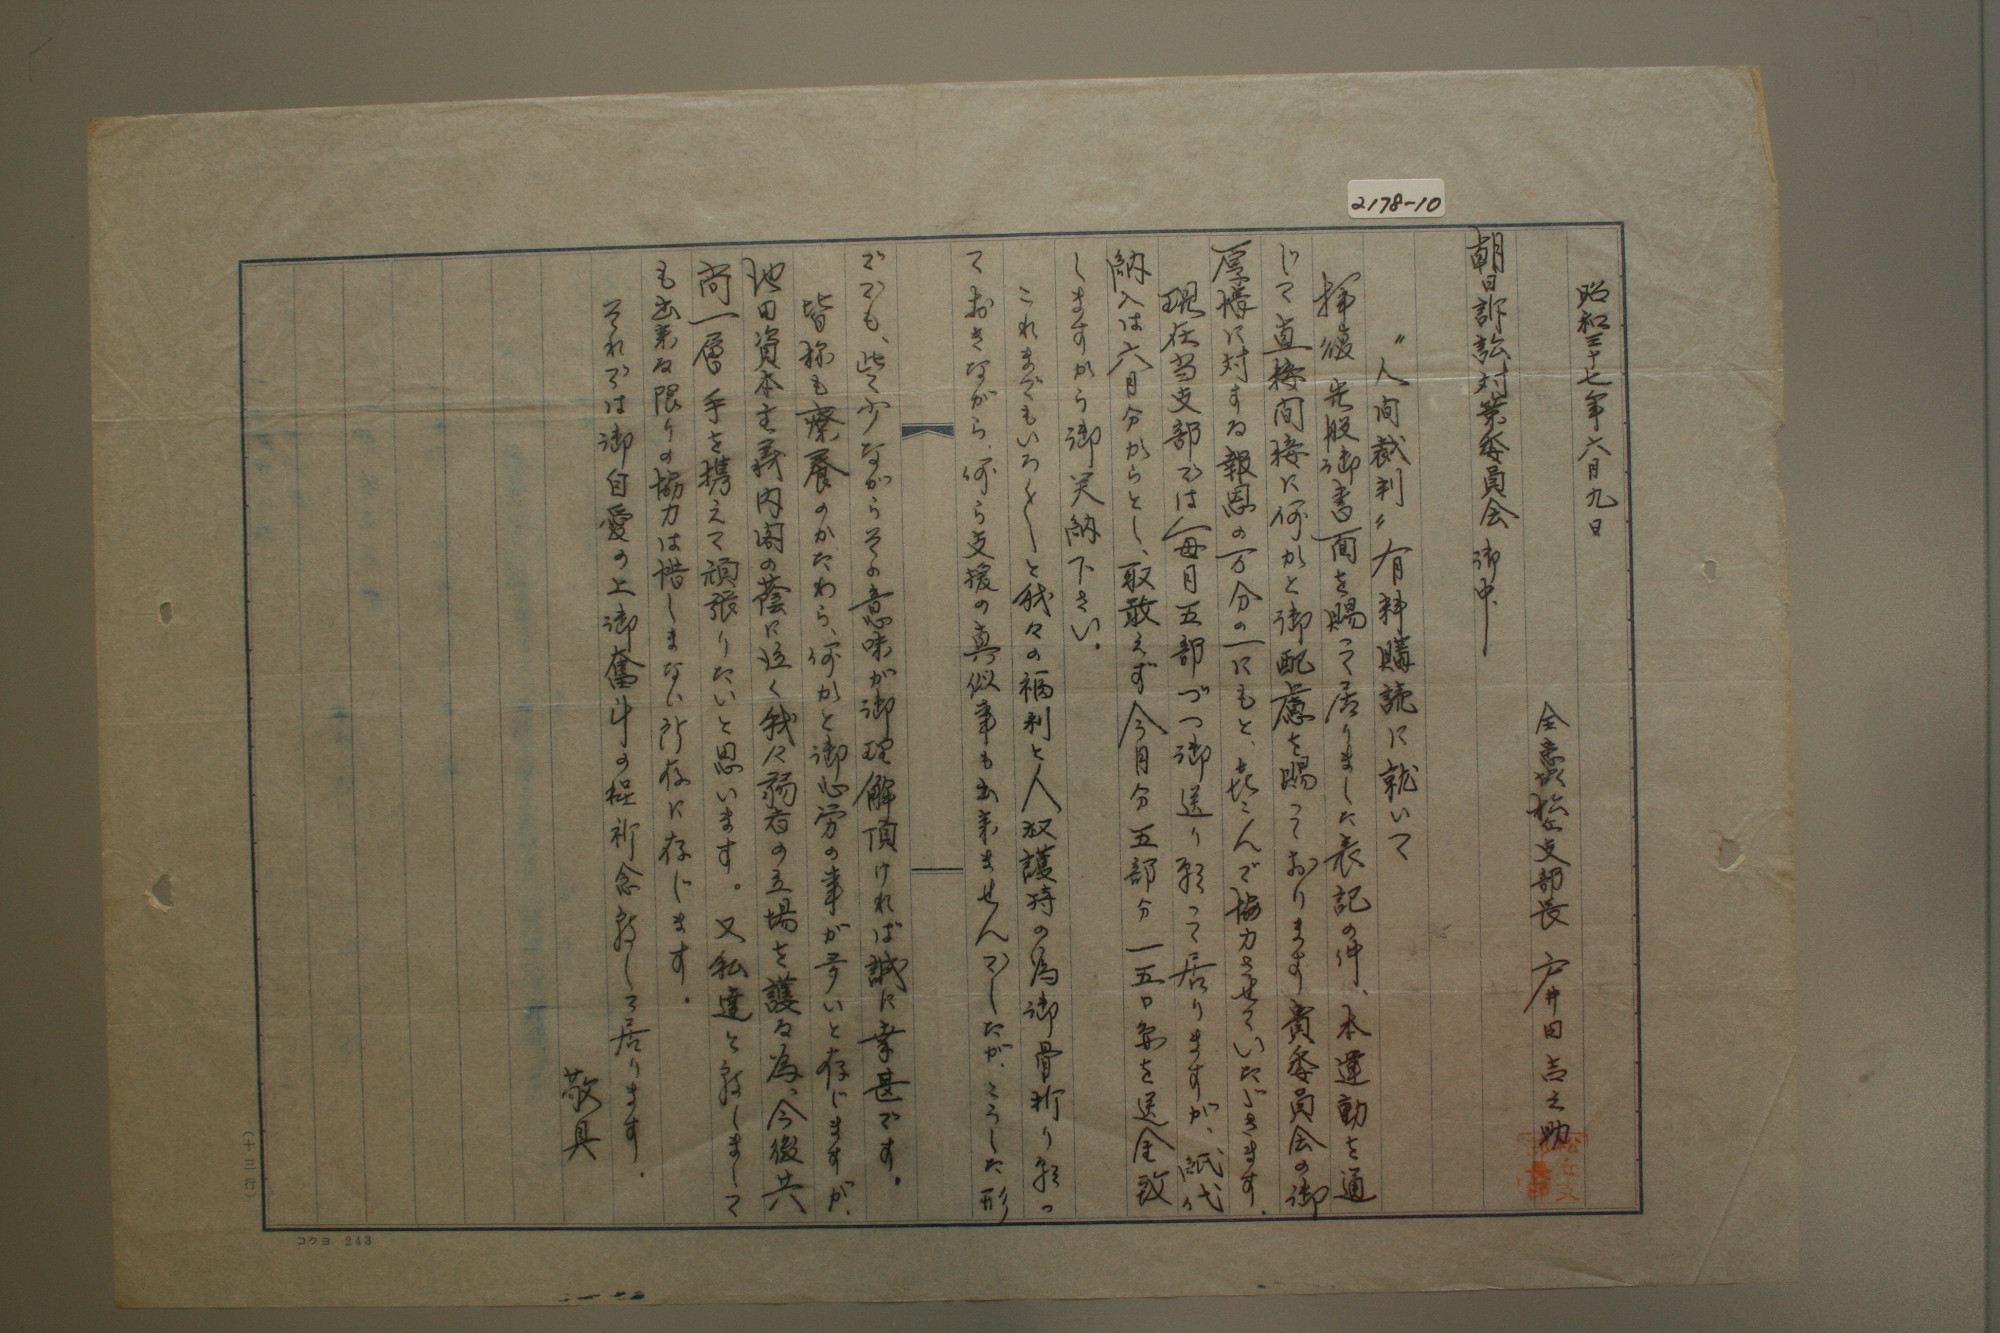 2178-10
昭和三十七年六月九日
全患協松丘支部長 戸井田吉之助
朝日訴訟対策委員会 御中
〝人間裁判〟有料購読に就いて
拝復 先般御書面を賜って居りました表記の件、本運動を通
じて直接間接に何かと御配慮を賜っております貴委員会の御
厚情に対する報恩の一万分の一にもと、喜こんで協力させていただきます。
現在当支部では毎月五部づつ御送り願って居りますが、紙代の
納入は六月分からとし、取敢えず今月分五部分一五〇円を送金致
しますから御笑納下さい。
これまでもいろ〱と我々の福利と人权護持の為御骨折り願っ
ておきながら、何ら支援の真似事も出来ませんでしたが、こうした形
ででも、些少ながらその意味が御理解頂ければ誠に幸甚です。
皆様も療養のかたわら、何かと御心労の事が多いと存じますが、
池田資本主義内閣の蔭に泣く我々弱者の立場を護る為、今後共
尚一層手を携えて頑張りたいと思います。又私達と致しまして
も出来る限りの協力は惜しまない所存に存じます。
それでは御自愛の上御奮斗の程祈念致して居ります。
敬具
(十三行)
コクヨ 243